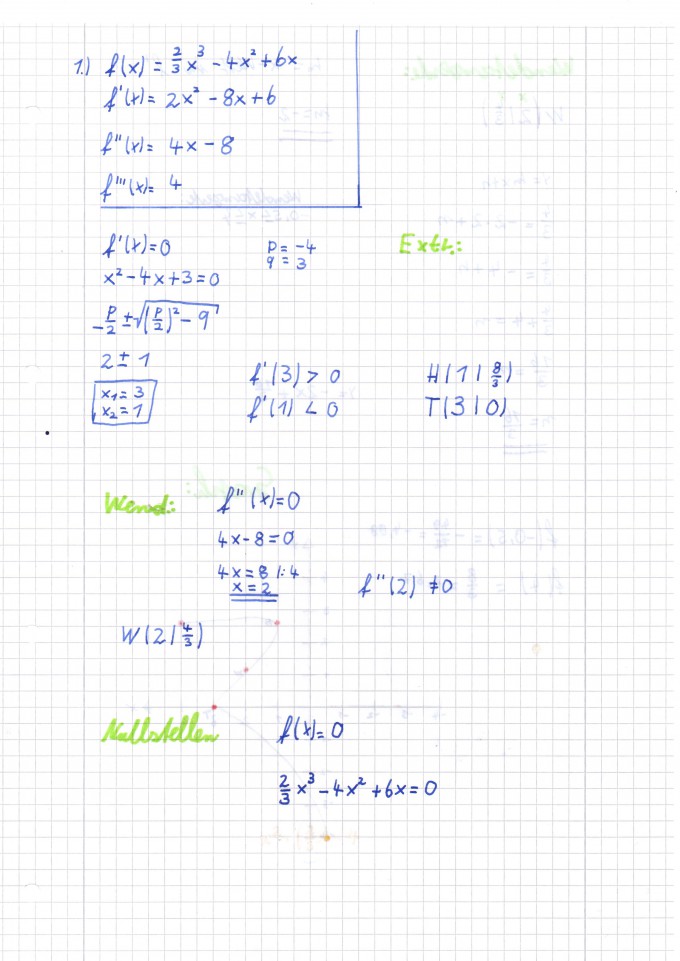 1.) f(x) = 2/3 x³ - 4x² + 6x
f'(x) = 2x² - 8x + 6
f''(x) = 4x - 8
f'''(x) = 4
f'(x) = 0
p = -4
q = 3
Extr.:
x² - 4x + 3 = 0
-p/2 ± √((p/2)² - q)
2 ± 1
x₁ = 3
x₂ = 1
f'(3) > 0
f'(1) < 0
H(1 | 8/3)
T(3 | 0)
Wend.:
f''(x) = 0
4x - 8 = 0
4x = 8 |:4
x = 2
f''(2) ≠ 0
W(2 | 4/3)
Nullstellen
f(x) = 0
2/3 x³ - 4x² + 6x = 0